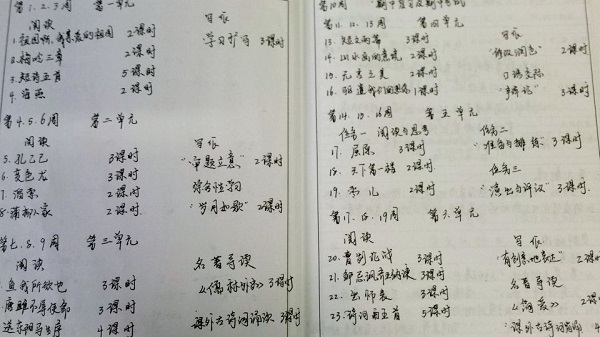 第1.2.3周 第一单元
阅读 写作
1.祖国啊,我亲爱的祖国 2课时 学习扩写 3课时
2.梅岭三章 2课时
3.短诗五首 5课时
4.海燕 2课时
第4.5.6周 第二单元
阅读 写作
5.孔乙己 3课时 "审题立意" 2课时
6.变色龙 3课时 综合性学习
7.溜索 2课时 "岁月如歌" 2课时
8.蒲柳人家 2课时
第七.8.9周 第三单元
阅读 名著导读
鱼我所欲也 3课时 《儒林外史》 3课时
唐雎不辱使命 3课时 课外古诗词诵读 3课时
送东阳马生序 4课时
第10周 期中复习及期中考试
第11.12.13周 第四单元
13.短文两篇 3课时 写作
14.山水画的意境 2课时 "修改润色" 2课时
15.无言之美 2课时 口语交际
16.驱遣我们的想象 1课时 "辩论" 3课时
第14.15.16周 第五单元
任务一 阅读与思考 任务二
17.屈原 3课时 "准备与排练" 3课时
18.天下第一楼 2课时 任务三
19.枣儿 2课时 "演出与评议" 3课时
第17.18.19周 第六单元
阅读 写作
20.曹刿论战 3课时 "有创意地表达" 2课时
21.邹忌讽齐王纳谏 3课时 名著导读
22.出师表 3课时 《简爱》 2课时
23.诗词曲五首 5课时 "课外古诗词诵读